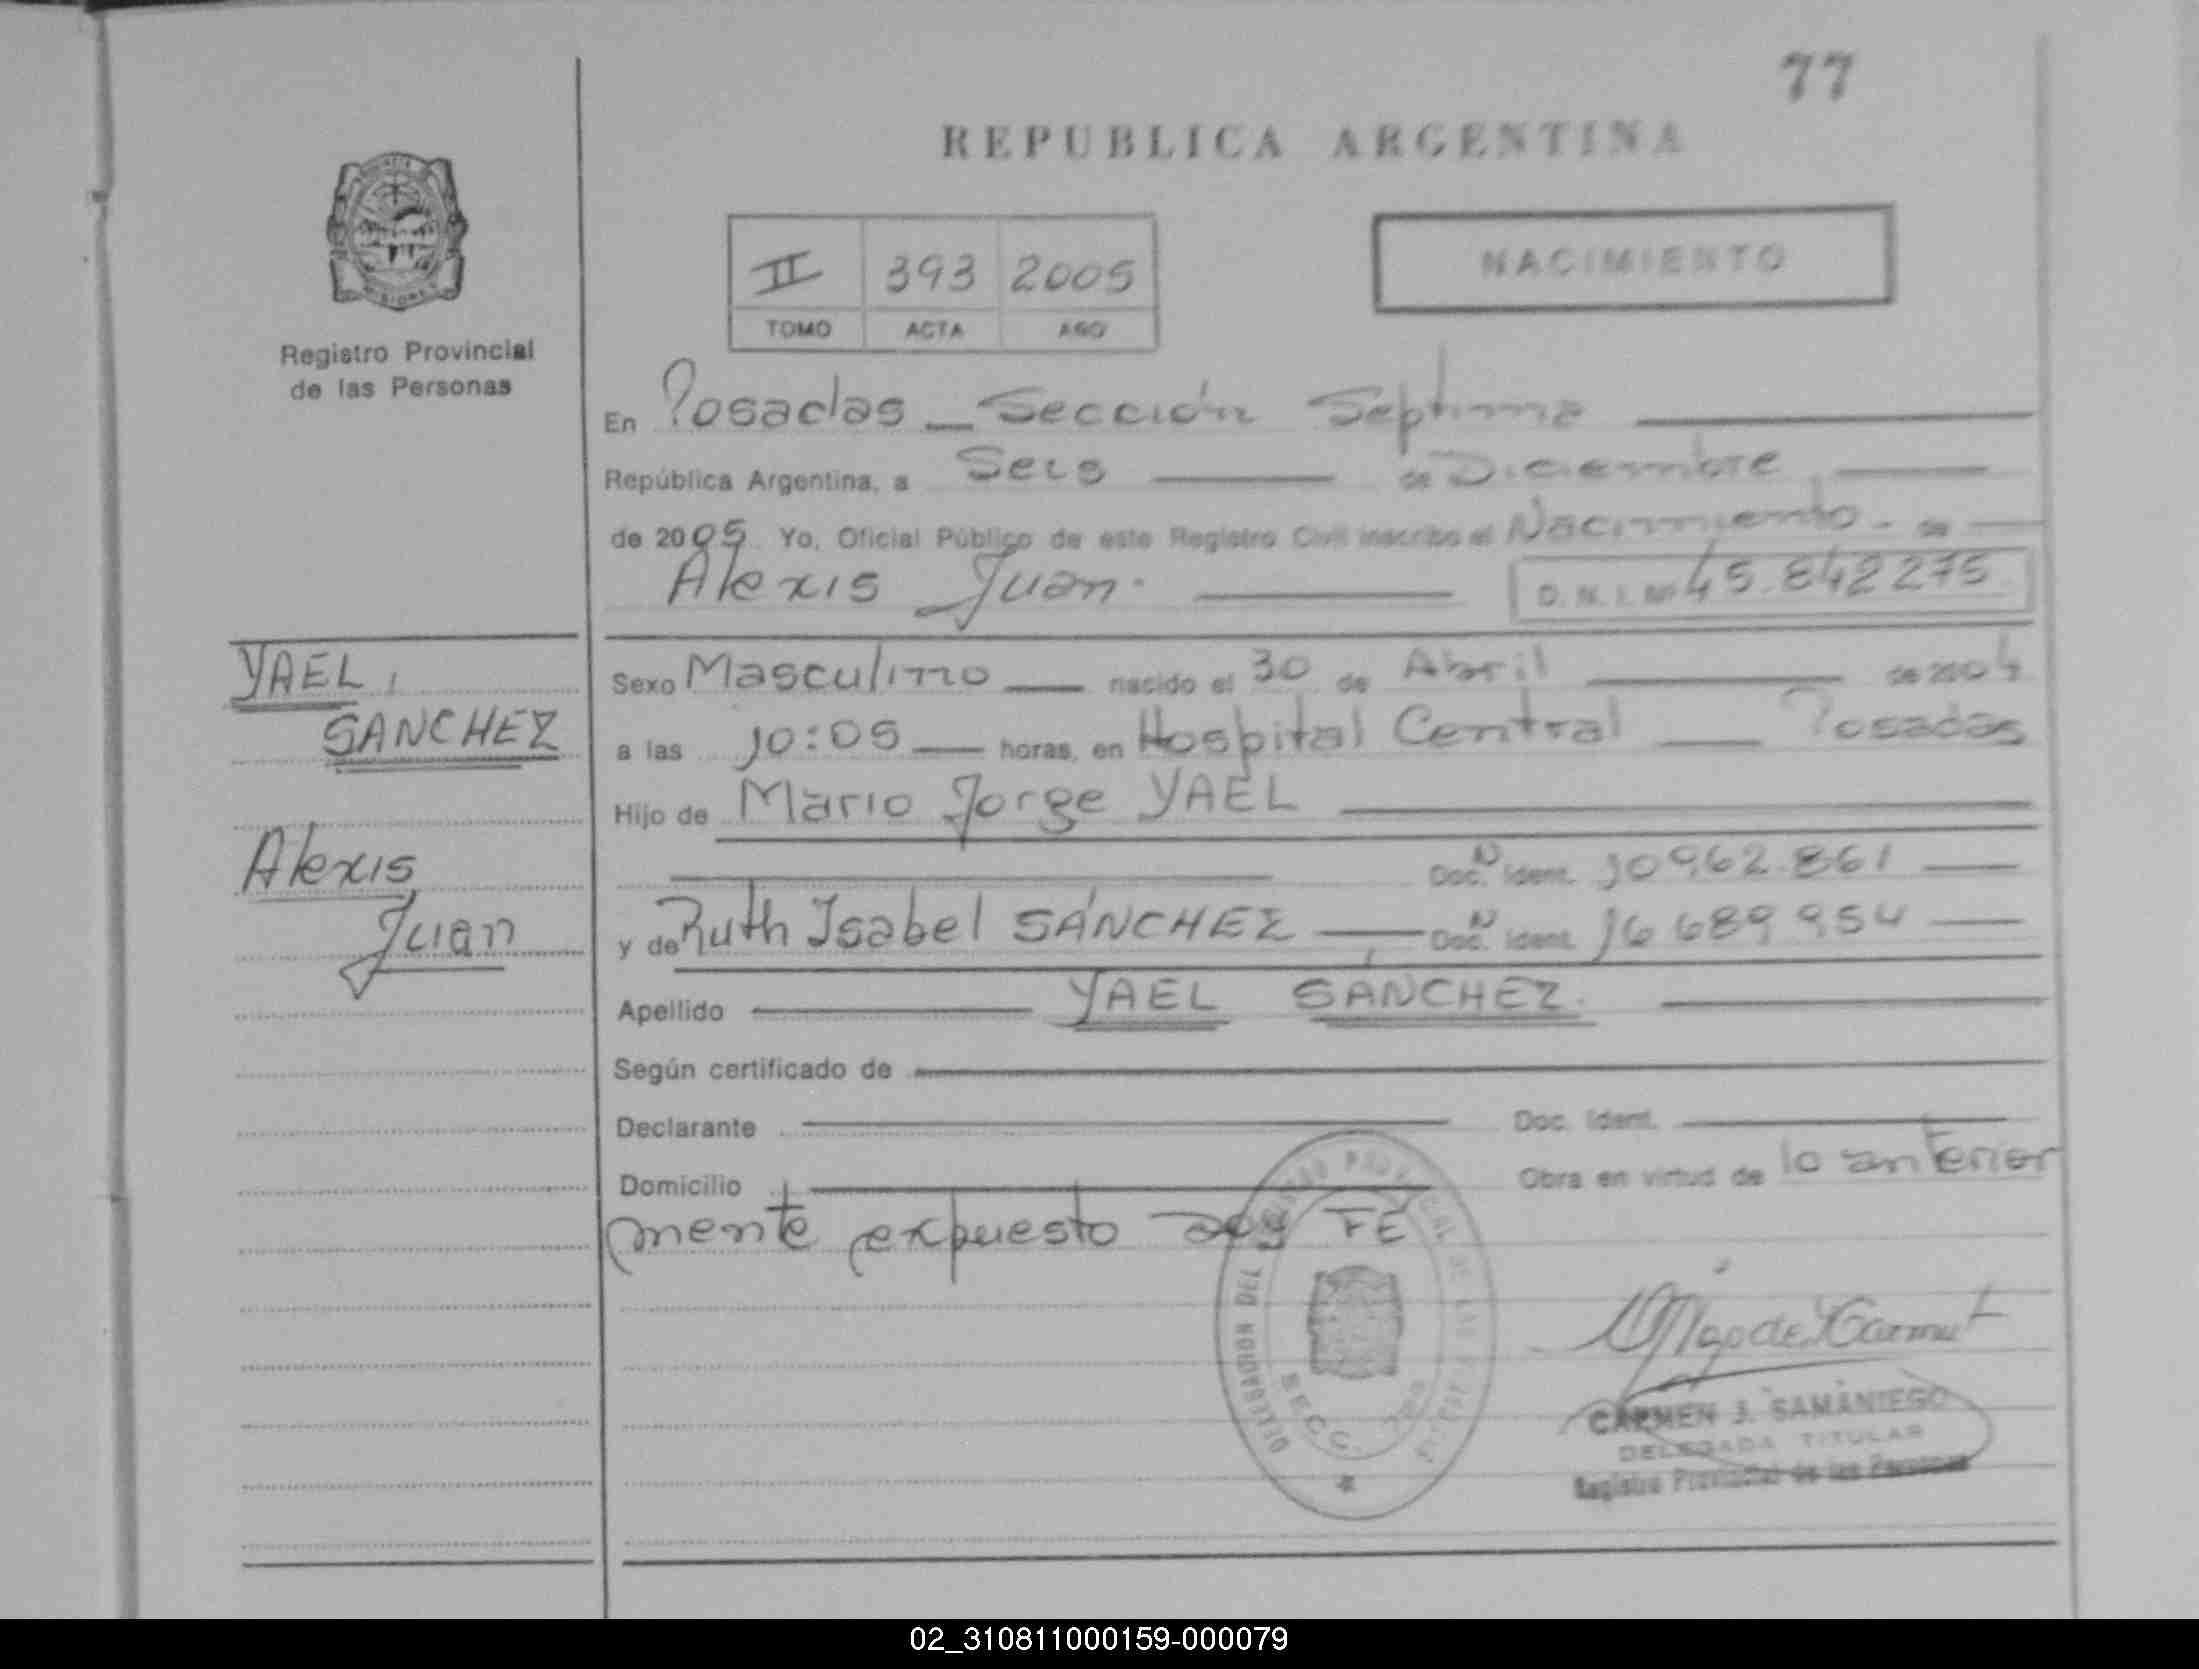 77
REPUBLICA ARGENTINA
MISIONES
Registro Provincial
de las Personas
II 393 2005
TOMO ACTA AÑO
NACIMIENTO
En Posadas - Sección Septima
República Argentina, a Seis de Diciembre
de 2005 Yo, Oficial Público de este Registro Civil inscribo el Nacimiento - de
Alexis Juan. D.N.I. Nº 45.842275
YAEL,
SANCHEZ
Alexis
Juan
Sexo Masculino nacido el 30 de Abril de 2004
a las 10:05 horas, en Hospital Central Posadas
Hijo de Mario Jorge YAEL
Doc. Ident. 10962.861
y de Ruth Isabel SÁNCHEZ Doc. Ident. 16689954
Apellido YAEL SÁNCHEZ.
Según certificado de
Declarante Doc. Ident.
Domicilio Obra en virtud de lo anterior
mente expuesto doy FE
DELEGACION DEL REGISTRO PROVINCIAL DE LAS PERSONAS
SECC. 7ma
CARMEN J. SAMANIEGO
DELEGADA TITULAR
Registro Provincial de las Personas
02_310811000159-000079